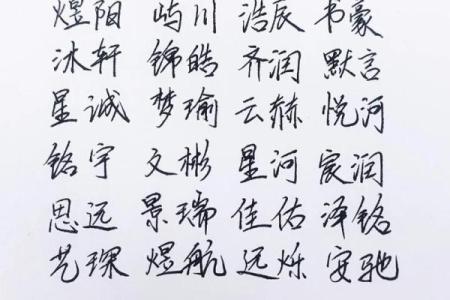 煜阳 屿川 浩辰 书豪
沐轩 锦皓 齐润 默言
星诚 梦瑜 云赫 悦河
铭宇 文彬 星河 宸润
思远 景瑞 佳佑 泽铭
艺琛 煜航 远烁 安驰